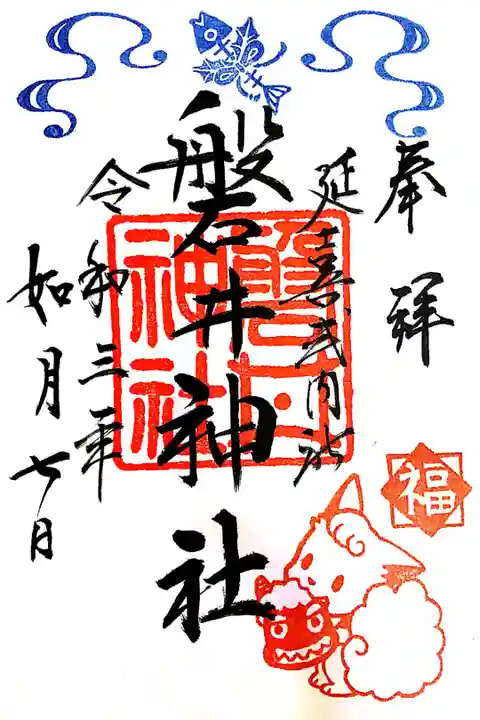 奉拝
延喜式内社
磐井神社
磐井神社
令和三年
如月七日
福